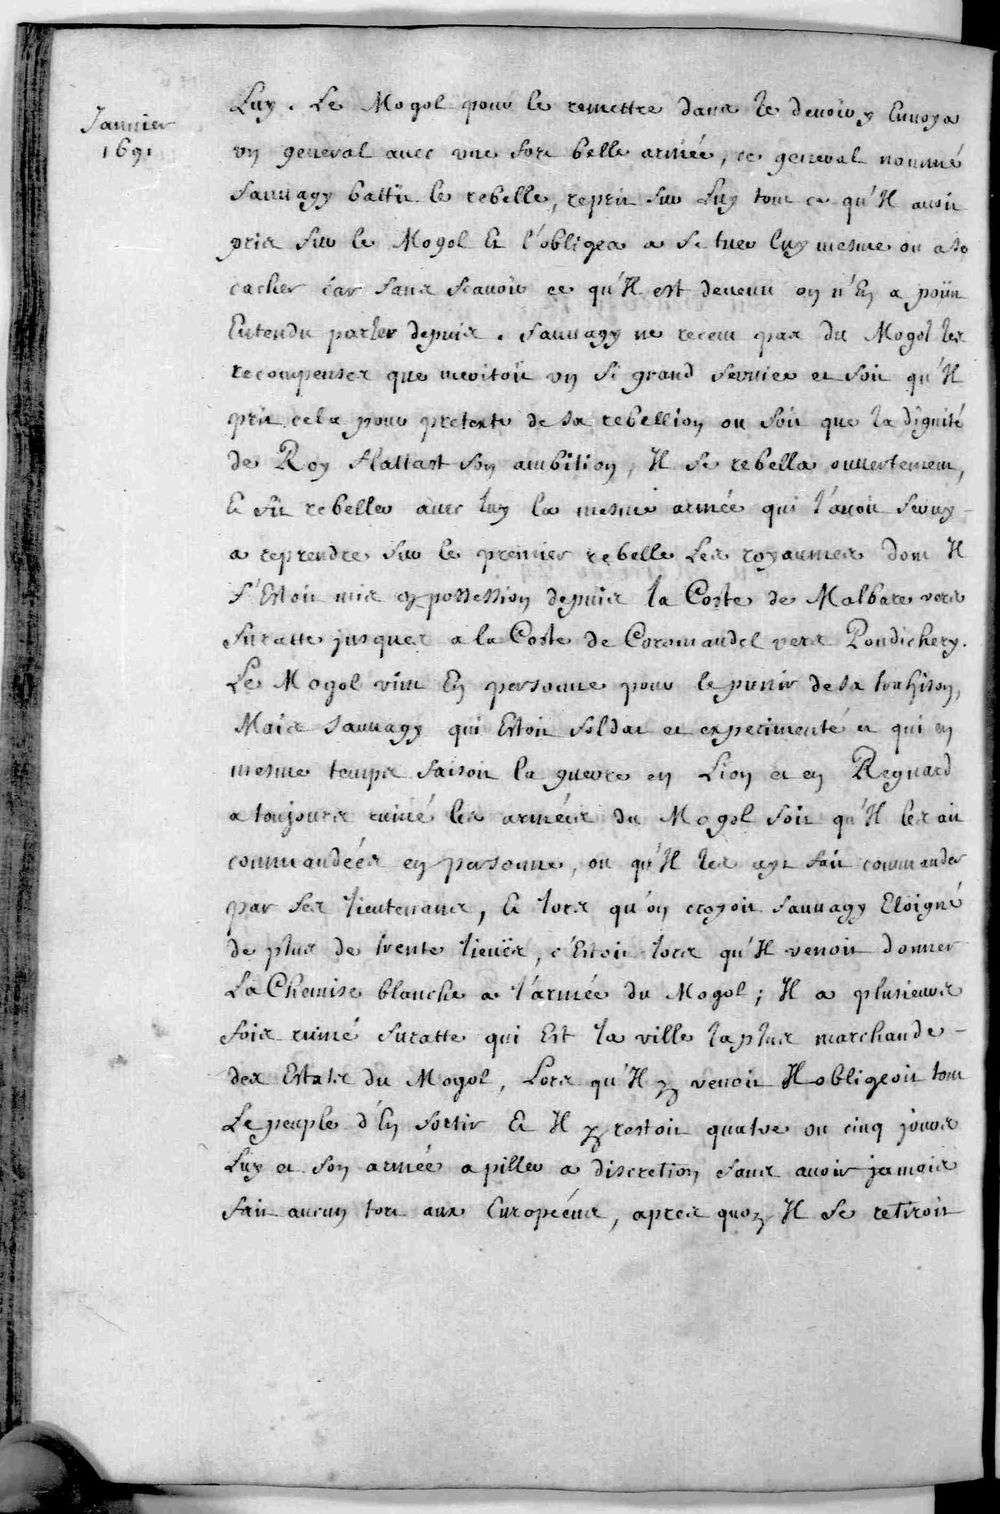 Januier
1691
Luy. Le Mogol pour le remettre dans le deuoir y Enuoya
vn general auec vne fort belle armée, ce general nommé
Sauuagy battit le rebelle, reprit sur Luy tout ce qu'Il auoit
pris sur le Mogol Et l'obligea a se tuer luy mesme ou a se
cacher car sans scauoir ce qu'Il est deuenu on n'En a point
Entendu parler depuis. Sauuagy ne receut pas du Mogol les
recompenses que meritoit vn si grand seruice et soit qu'Il
prit cela pour pretexte de sa rebellion ou soit que la dignité
de Roy flattast son ambition, Il se rebella ouuertement,
Et fit rebeller auec luy la mesme armée qui l'auoit seruy
a reprendre sur le premier rebelle Les royaumes dont Il
s'Estoit mis en possession depuis la Coste de Malbare vers
Suratte jusques a la Coste de Coromandel vers Pondichery.
Le Mogol vint En personne pour le punir de sa trahison,
Mais Sauuagy qui Estoit soldat et experimenté et qui en
mesme temps faisoit la guerre en Lion et en Regnard
a toujours ruiné les armées du Mogol soit qu'Il les ait
commandées en personne, ou qu'Il les ayt fait commander
par ses lieutenans, Et lors qu'on croyoit Sauuagy Eloigné
de plus de trente lieuës, c'Estoit lors qu'Il venoit donner
La Chemise blanche a l'armée du Mogol; Il a plusieurs
fois ruiné Suratte qui Est la ville la plus marchande
des Estats du Mogol, Lors qu'Il y venoit Il obligeoit tout
Le peuple d'En sortir Et Il y restoit quatre ou cinq jours
Luy et son armée a piller a discretion sans auoir jamais
fait aucun tort aux Européens, apres quoy Il se retiroit